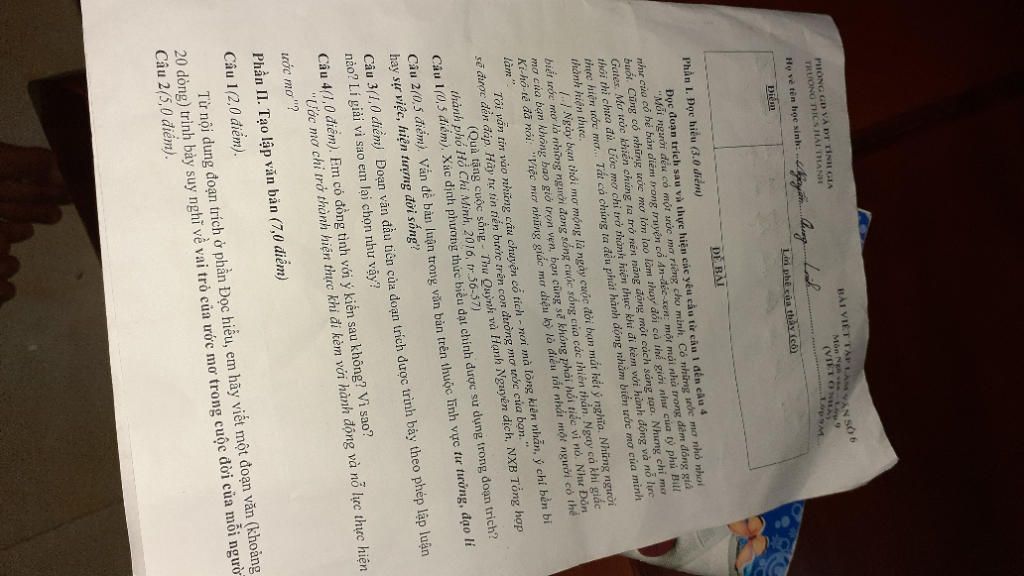 PHÒNG GD VÀ ĐT TĨNH GIA
TRƯỜNG THCS HẢI THANH
BÀI VIẾT TẬP LÀM VĂN SỐ 6
Môn Ngữ văn - Lớp 9
(VIẾT Ở NHÀ)
Họ và tên học sinh: Nguyễn Lớp 9A
Điểm
Lời phê của thầy (cô)
ĐỀ BÀI
Phần I. Đọc hiểu (3.0 điểm)
Đọc đoạn trích sau và thực hiện các yêu cầu từ câu 1 đến câu 4
"Mỗi người đều có một ước mơ riêng cho mình. Có những ước mơ nhỏ nhoi
như của cô bé bán diêm trong truyện cổ An-đéc-xen: một mái nhà trong đêm đông giá
buốt. Cũng có những ước mơ lớn lao làm thay đổi cả thế giới như của tỷ phú Bill
Gates. Mơ ước khiến chúng ta trở nên năng động một cách sáng tạo. Nhưng chỉ mơ
thôi thì chưa đủ. Ước mơ chỉ trở thành hiện thực khi đi kèm với hành động và nỗ lực
thực hiện ước mơ... Tất cả chúng ta đều phải hành động nhằm biến ước mơ của mình
thành hiện thực.
[...] Ngày bạn thôi mơ mộng là ngày cuộc đời bạn mất hết ý nghĩa. Những người
biết ước mơ là những người đang sống cuộc sống của các thiên thần. Ngay cả khi giấc
mơ của bạn không bao giờ trọn vẹn, bạn cũng sẽ không phải hối tiếc vì nó. Như Đôn
Ki-hô-tê đã nói: "Việc mơ những giấc mơ diệu kỳ là điều tốt nhất một người có thể
làm".
Tôi vẫn tin vào những câu chuyện cổ tích - nơi mà lòng kiên nhẫn, ý chí bền bỉ
sẽ được đền đáp. Hãy tự tin tiến bước trên con đường mơ ước của bạn."
(Quà tặng cuộc sống - Thu Quỳnh và Hạnh Nguyên dịch, NXB Tổng hợp
thành phố Hồ Chí Minh, 2016, tr.56-57)
Câu 1(0.5 điểm). Xác định phương thức biểu đạt chính được sử dụng trong đoạn trích?
Câu 2(0.5 điểm). Vấn đề bàn luận trong văn bản trên thuộc lĩnh vực tư tưởng, đạo lí
hay sự việc, hiện tượng đời sống?
Câu 3(1.0 điểm) Đoạn văn đầu tiên của đoạn trích được trình bày theo phép lập luận
nào? Lí giải vì sao em lại chọn như vậy?
Câu 4(1,0 điểm). Em có đồng tình với ý kiến sau không? Vì sao?
"Ước mơ chỉ trở thành hiện thực khi đi kèm với hành động và nỗ lực thực hiện
ước mơ"?
Phần II. Tạo lập văn bản (7,0 điểm)
Câu 1(2,0 điểm).
Từ nội dung đoạn trích ở phần Đọc hiểu, em hãy viết một đoạn văn (khoảng
20 dòng) trình bày suy nghĩ về vai trò của ước mơ trong cuộc đời của mỗi người
Câu 2(5,0 điểm).